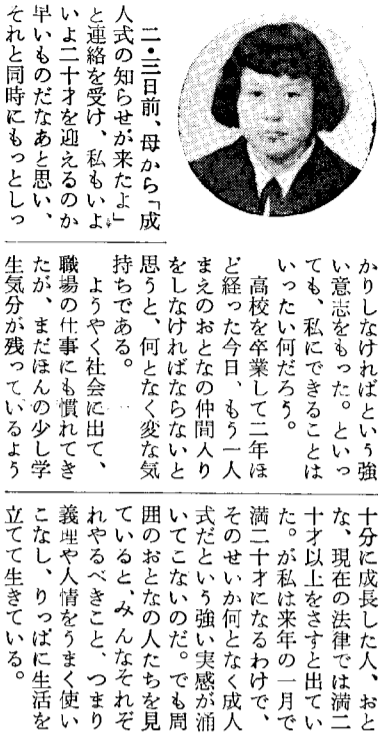 二・三日前、母から「成
人式の知らせが来たよ」
と連絡を受け、私もいよ
いよ二十才を迎えるのか
早いものだなあと思い、
それと同時にもっとしっ
かりしなければという強
い意志をもった。といっ
ても、私にできることは
いったい何だろう。
高校を卒業して二年ほ
ど経った今日、もう一人
まえのおとなの仲間入り
をしなければならないと
思うと、何となく変な気
持ちである。
ようやく社会に出て、
職場の仕事にも慣れてき
たが、まだほんの少し学
生気分が残っているよう
十分に成長した人、おと
な、現在の法律では満二
十才以上をさすと出てい
た。が私は来年の一月で
満二十才になるわけで、
そのせいか何となく成人
式だという強い実感が涌
いてこないのだ。でも周
囲のおとなの人たちを見
ていると、みんなそれぞ
れやるべきこと、つまり
義理や人情をうまく使い
こなし、りっぱに生活を
立てて生きている。